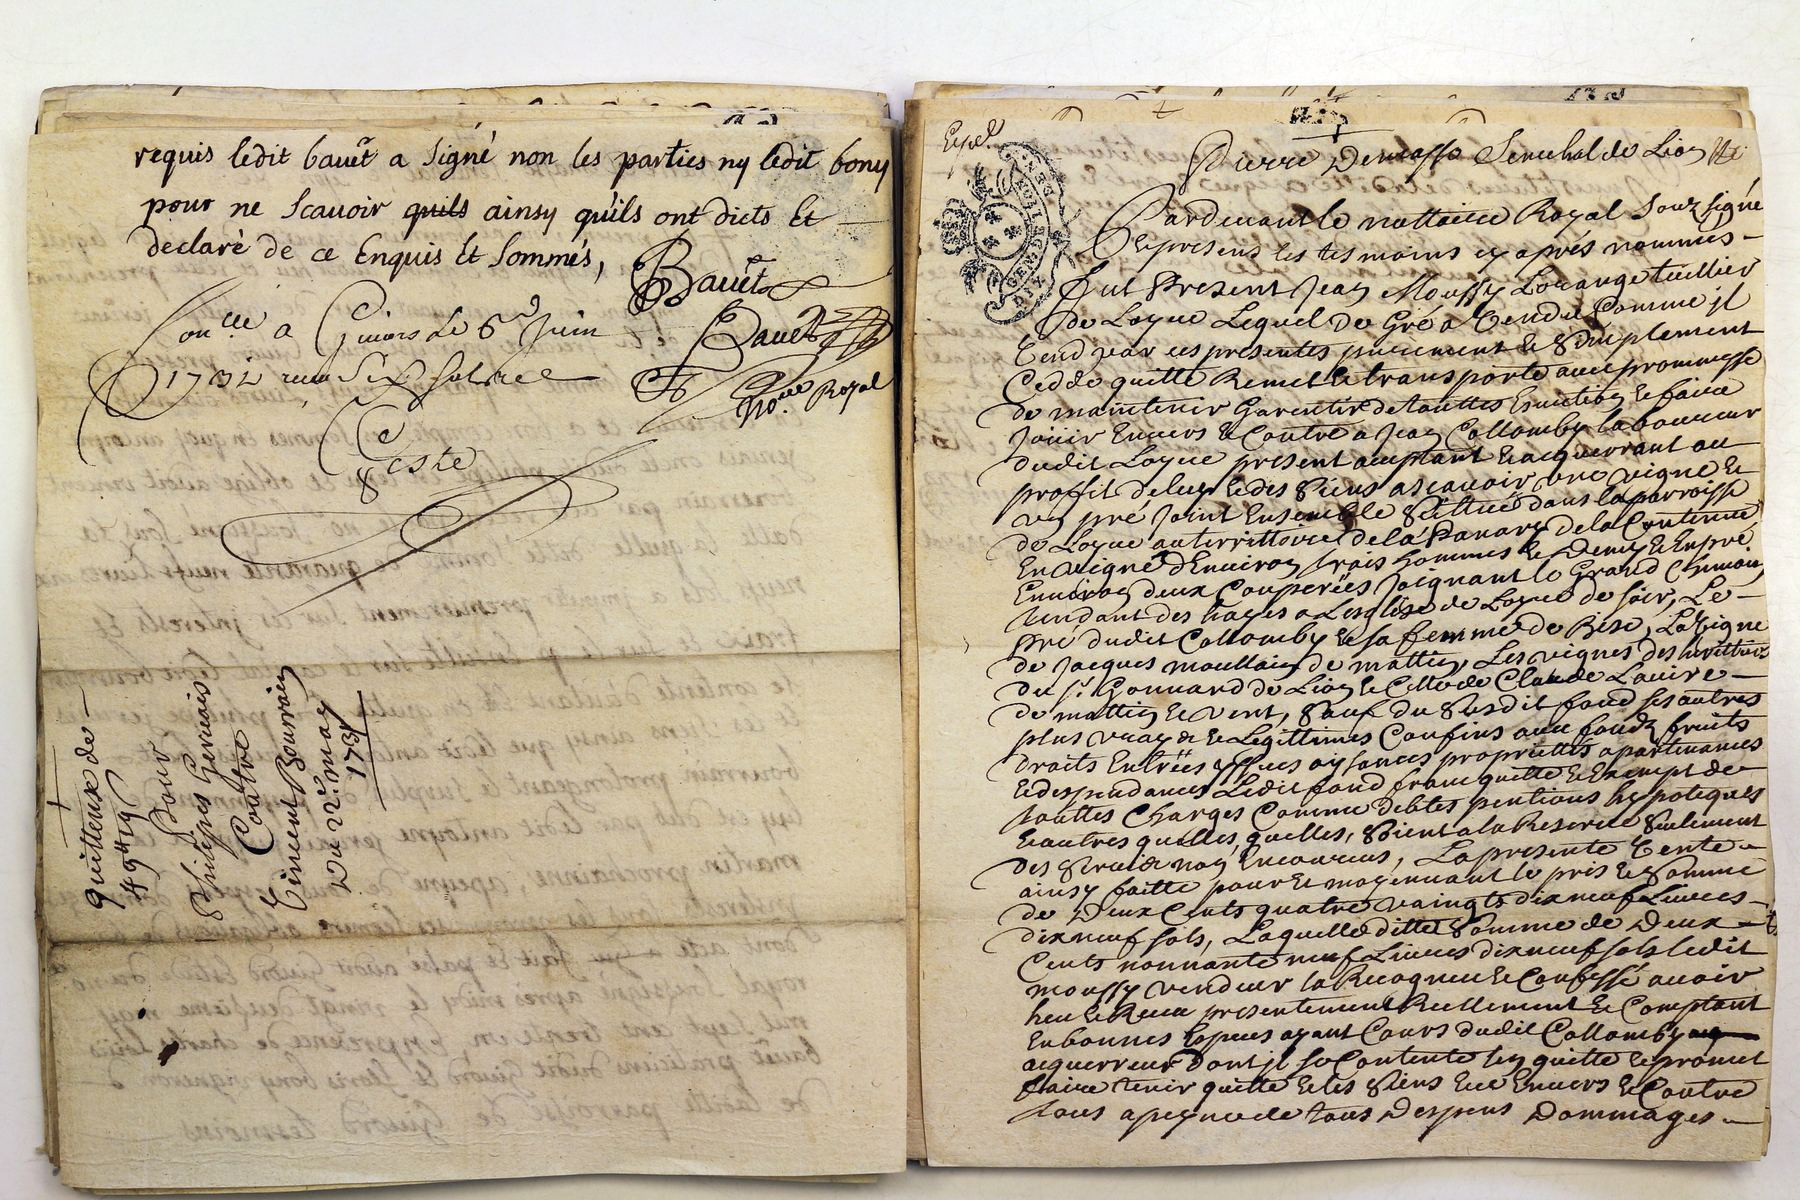 requis ledit bauêt a Signé non les parties ny ledit bony
pour ne Scauoir quils ainsy quils ont dicts Et
declaré de ce Enquis Et Sommés,
Bauêt
Bauêt
No.re Royal
Con.lle a Giuors Le Juin
1731 receu Six sols
Ceste
quittance de
149tt 19s
Pour
Philipes Geruais
Contre
Vincent Bourrain
Du 22e may
1731
Exped.
GEN DE LYON
Pierre Demasso Senechal de Lion
Pardeuant le nottaire Royal Souz signé
Et presens les tesmoins cy aprés nommés
fut Present Jean Moussy Lorange tuillier
de Loyre Lequel de Gré a Vendu Comme jl
Vend par ces presentes purement Et Simplement
Cedde quitte Remet Et transporte auec prommesse
de maintenir Garentir de touttes Euiction Et faire
Joüir Enuers Et Contre a Jean Collomby laboureur
dudit Loyre present acceptant Et acquerrant au
proffit deluy Et des Siens ascauoir vne vigne Et
vn pré Joint Ensemble Scitué dans la parroisse
de Loyre au territtoire de la Panary de la Contenue
En vigne d'Enuiron trois hommes Et Demy Et En pré
Enuiron deux Couperées Joignant le Grand Chemin
tendant des hayes a L'esglise de Loyre de soir, Le
Pré dudit Collomby Et sa femme de Bise, La Vigne
de Jacques moullain de mattin, Les vignes des herittiers
du Sr. Gonnard de Lion Et Celle de Claude Lauire
de mattin Et vent, Sauf du Susdit fond ses autres
plus vrays Et Legittimes Confins auec fondz fruits
droits Entrées yssues aysances proprietés apartenances
Et despendances Ledit fond franc quitte Et Exempt de
touttes Charges Comme debtes pentions hypoteques
Et autres quelles, quelles, Soient a la Reserue Seulement
des Seruis non Encourus, La presente Vente
ainsy faitte pour Et moyennant le pris Et Somme
de Deux Cents quatre vaingts dixneuf Liures
dixneuf sols, Laquelle ditte Somme de Deux
Cents nonnante neuf Liures dixneuf sols ledit
moussy vendeur la Recogneu Et Confessé auoir
heu Et Receu presentement Reellement Et Comptant
En bonnes Especes ayant Cours dudit Collomby
acquerreur Dont jl se Contente l'en quitte Et promet
faire tenir quitte Et les Siens Enuers Et Contre
tous a peyne de tous Despens Dommages